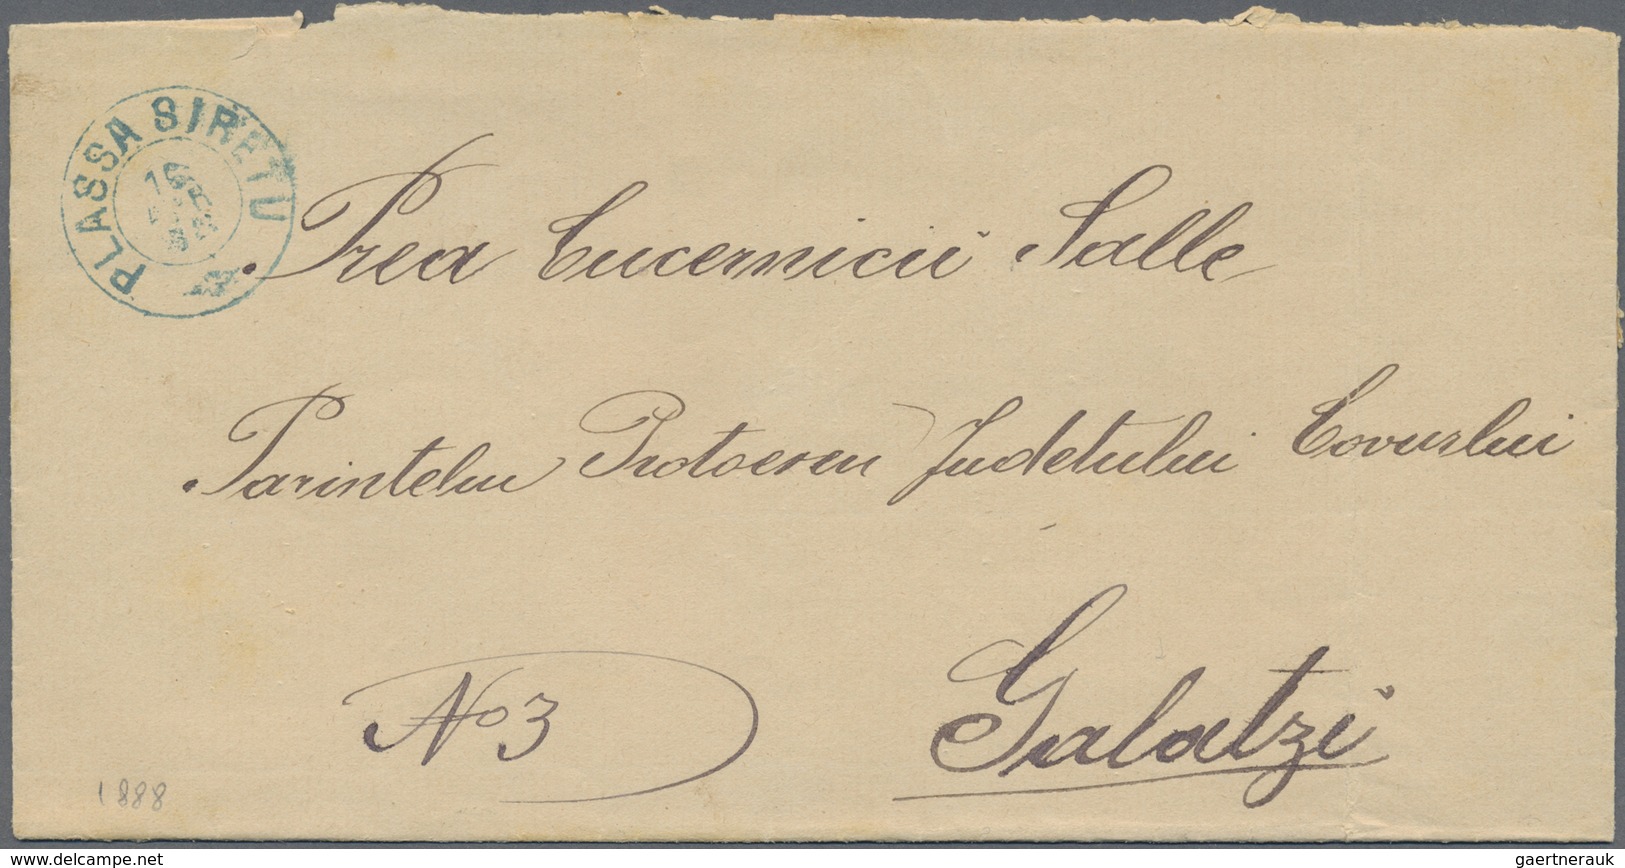 PLASSA SIRETU
Prea Cucernicii Salle
Parintelui Protoereu Judetului Covurlui
No 3
Galatzi
1888
www.delcampe.net
gaertnerauk